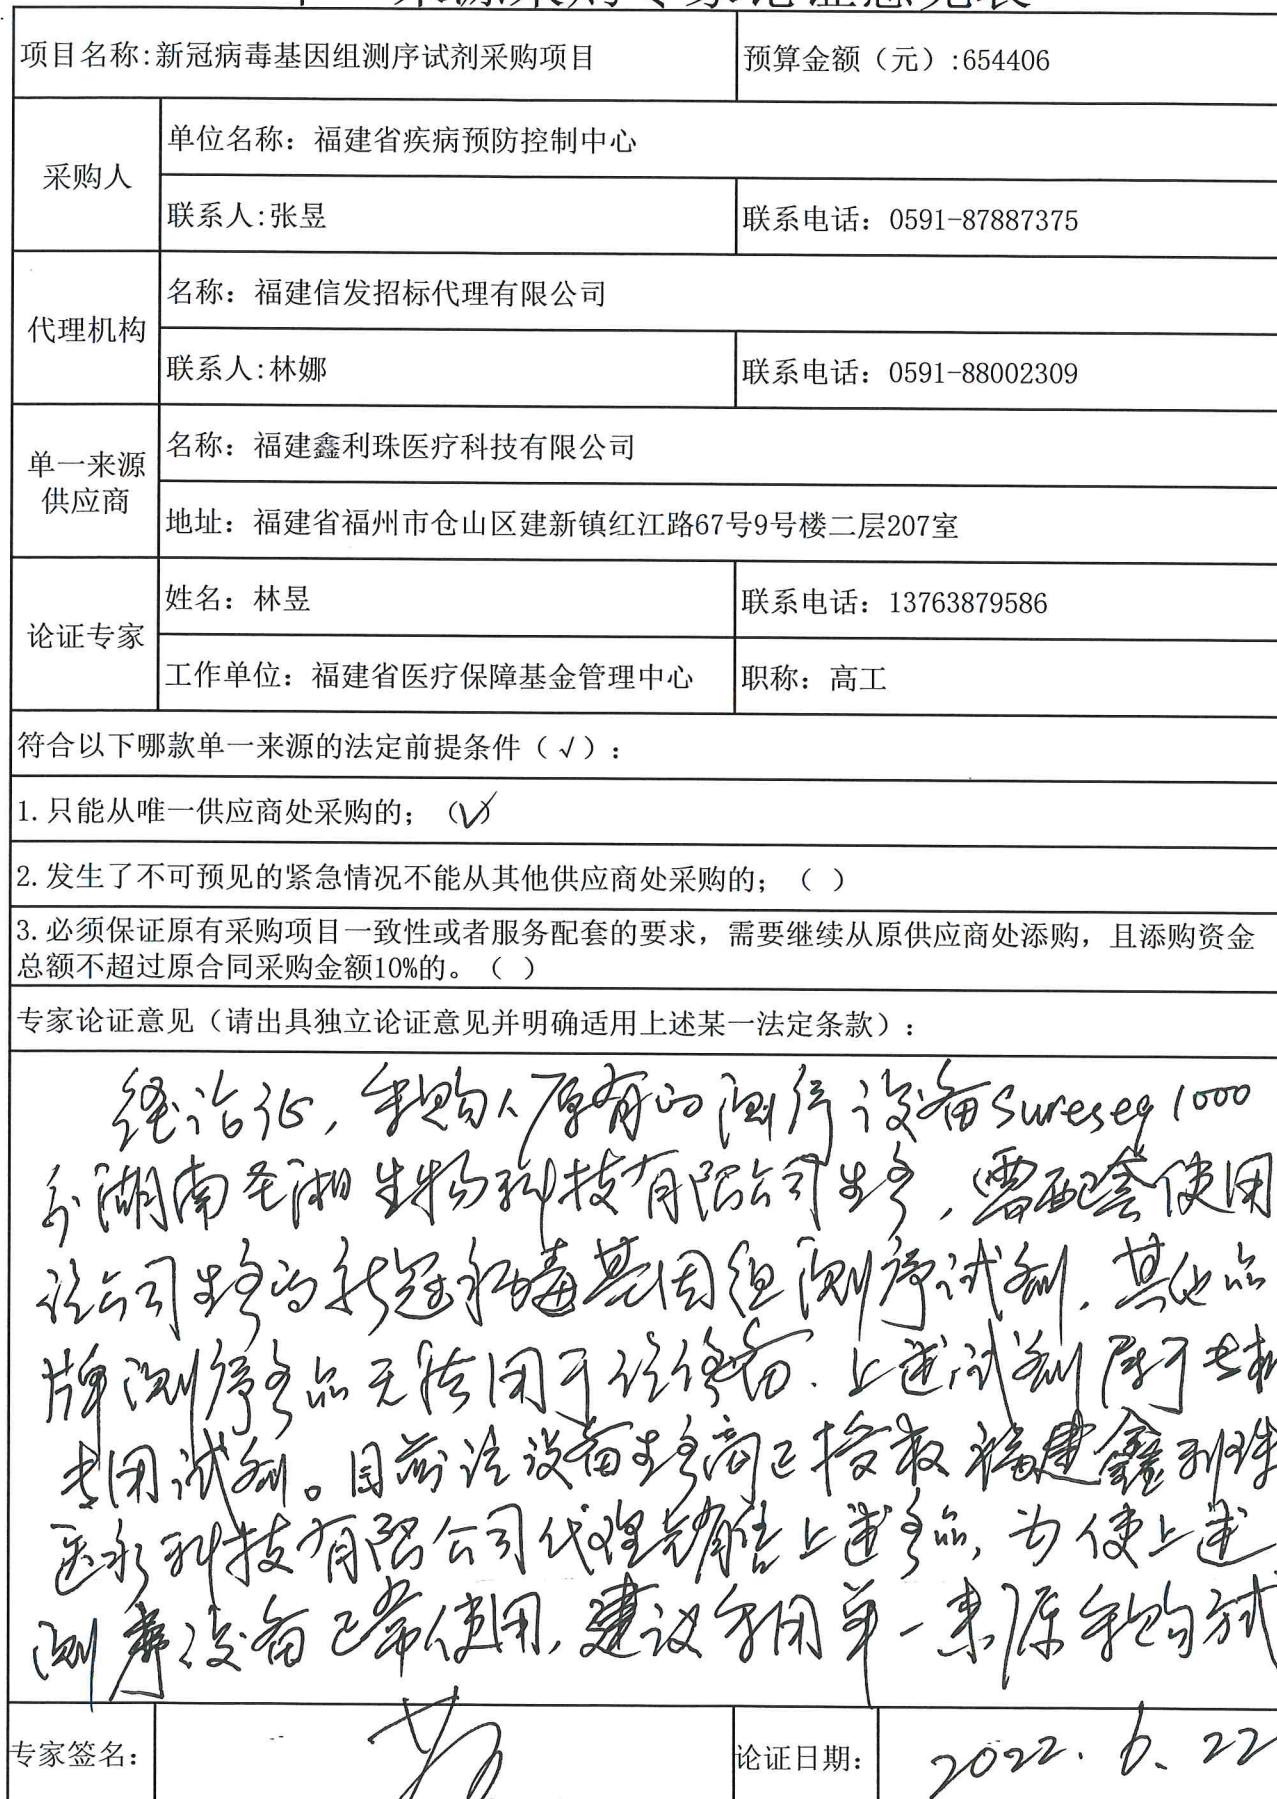 项目名称:新冠病毒基因组测序试剂采购项目
预算金额（元）:654406
采购人
单位名称：福建省疾病预防控制中心
联系人:张昱
联系电话：0591-87887375
代理机构
名称：福建信发招标代理有限公司
联系人:林娜
联系电话：0591-88002309
单一来源
供应商
名称：福建鑫利珠医疗科技有限公司
地址：福建省福州市仓山区建新镇红江路67号9号楼二层207室
论证专家
姓名：林昱
联系电话：13763879586
工作单位：福建省医疗保障基金管理中心
职称：高工
符合以下哪款单一来源的法定前提条件（√）：
1.只能从唯一供应商处采购的；（√）
2.发生了不可预见的紧急情况不能从其他供应商处采购的；（ ）
3.必须保证原有采购项目一致性或者服务配套的要求，需要继续从原供应商处添购，且添购资金
总额不超过原合同采购金额10%的。（ ）
专家论证意见（请出具独立论证意见并明确适用上述某一法定条款）：
经论证，采购人原有的测序设备Sureseq 1000
为湖南圣湘生物科技有限公司生产，需配套使用
该公司生产的新冠病毒基因组测序试剂，其他品
牌测序产品无法用于该设备．上述试剂属于专机
专用试剂。目前该设备生产商已授权福建鑫利珠
医疗科技有限公司代理销售上述产品，为使上述
测序设备正常使用，建议采用单一来源采购方式
专家签名：
论证日期：
2022.6.22